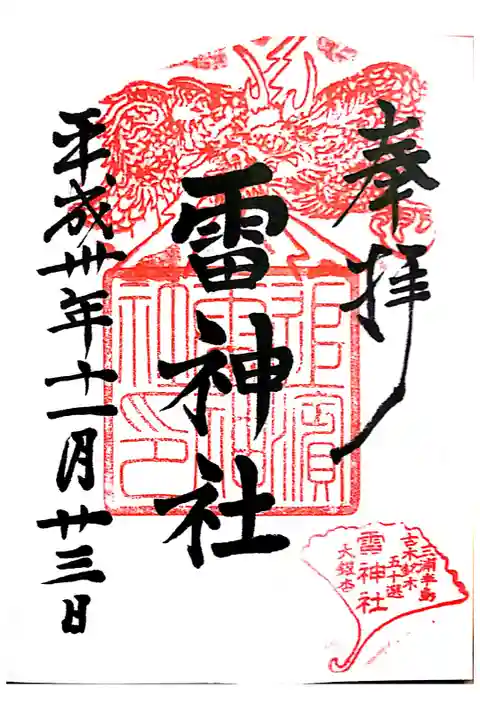 奉拝
雷神社
平成卅年十一月廿三日
追濱
雷神
社印
三浦半島
古木名木
五十選
雷神社
大銀杏